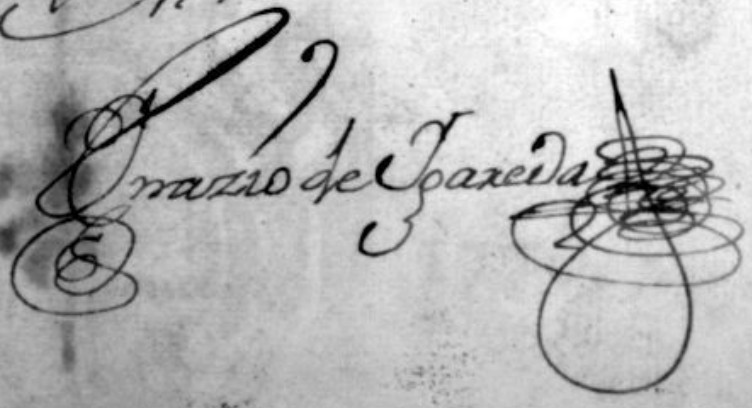 Ignazio de Ygareda